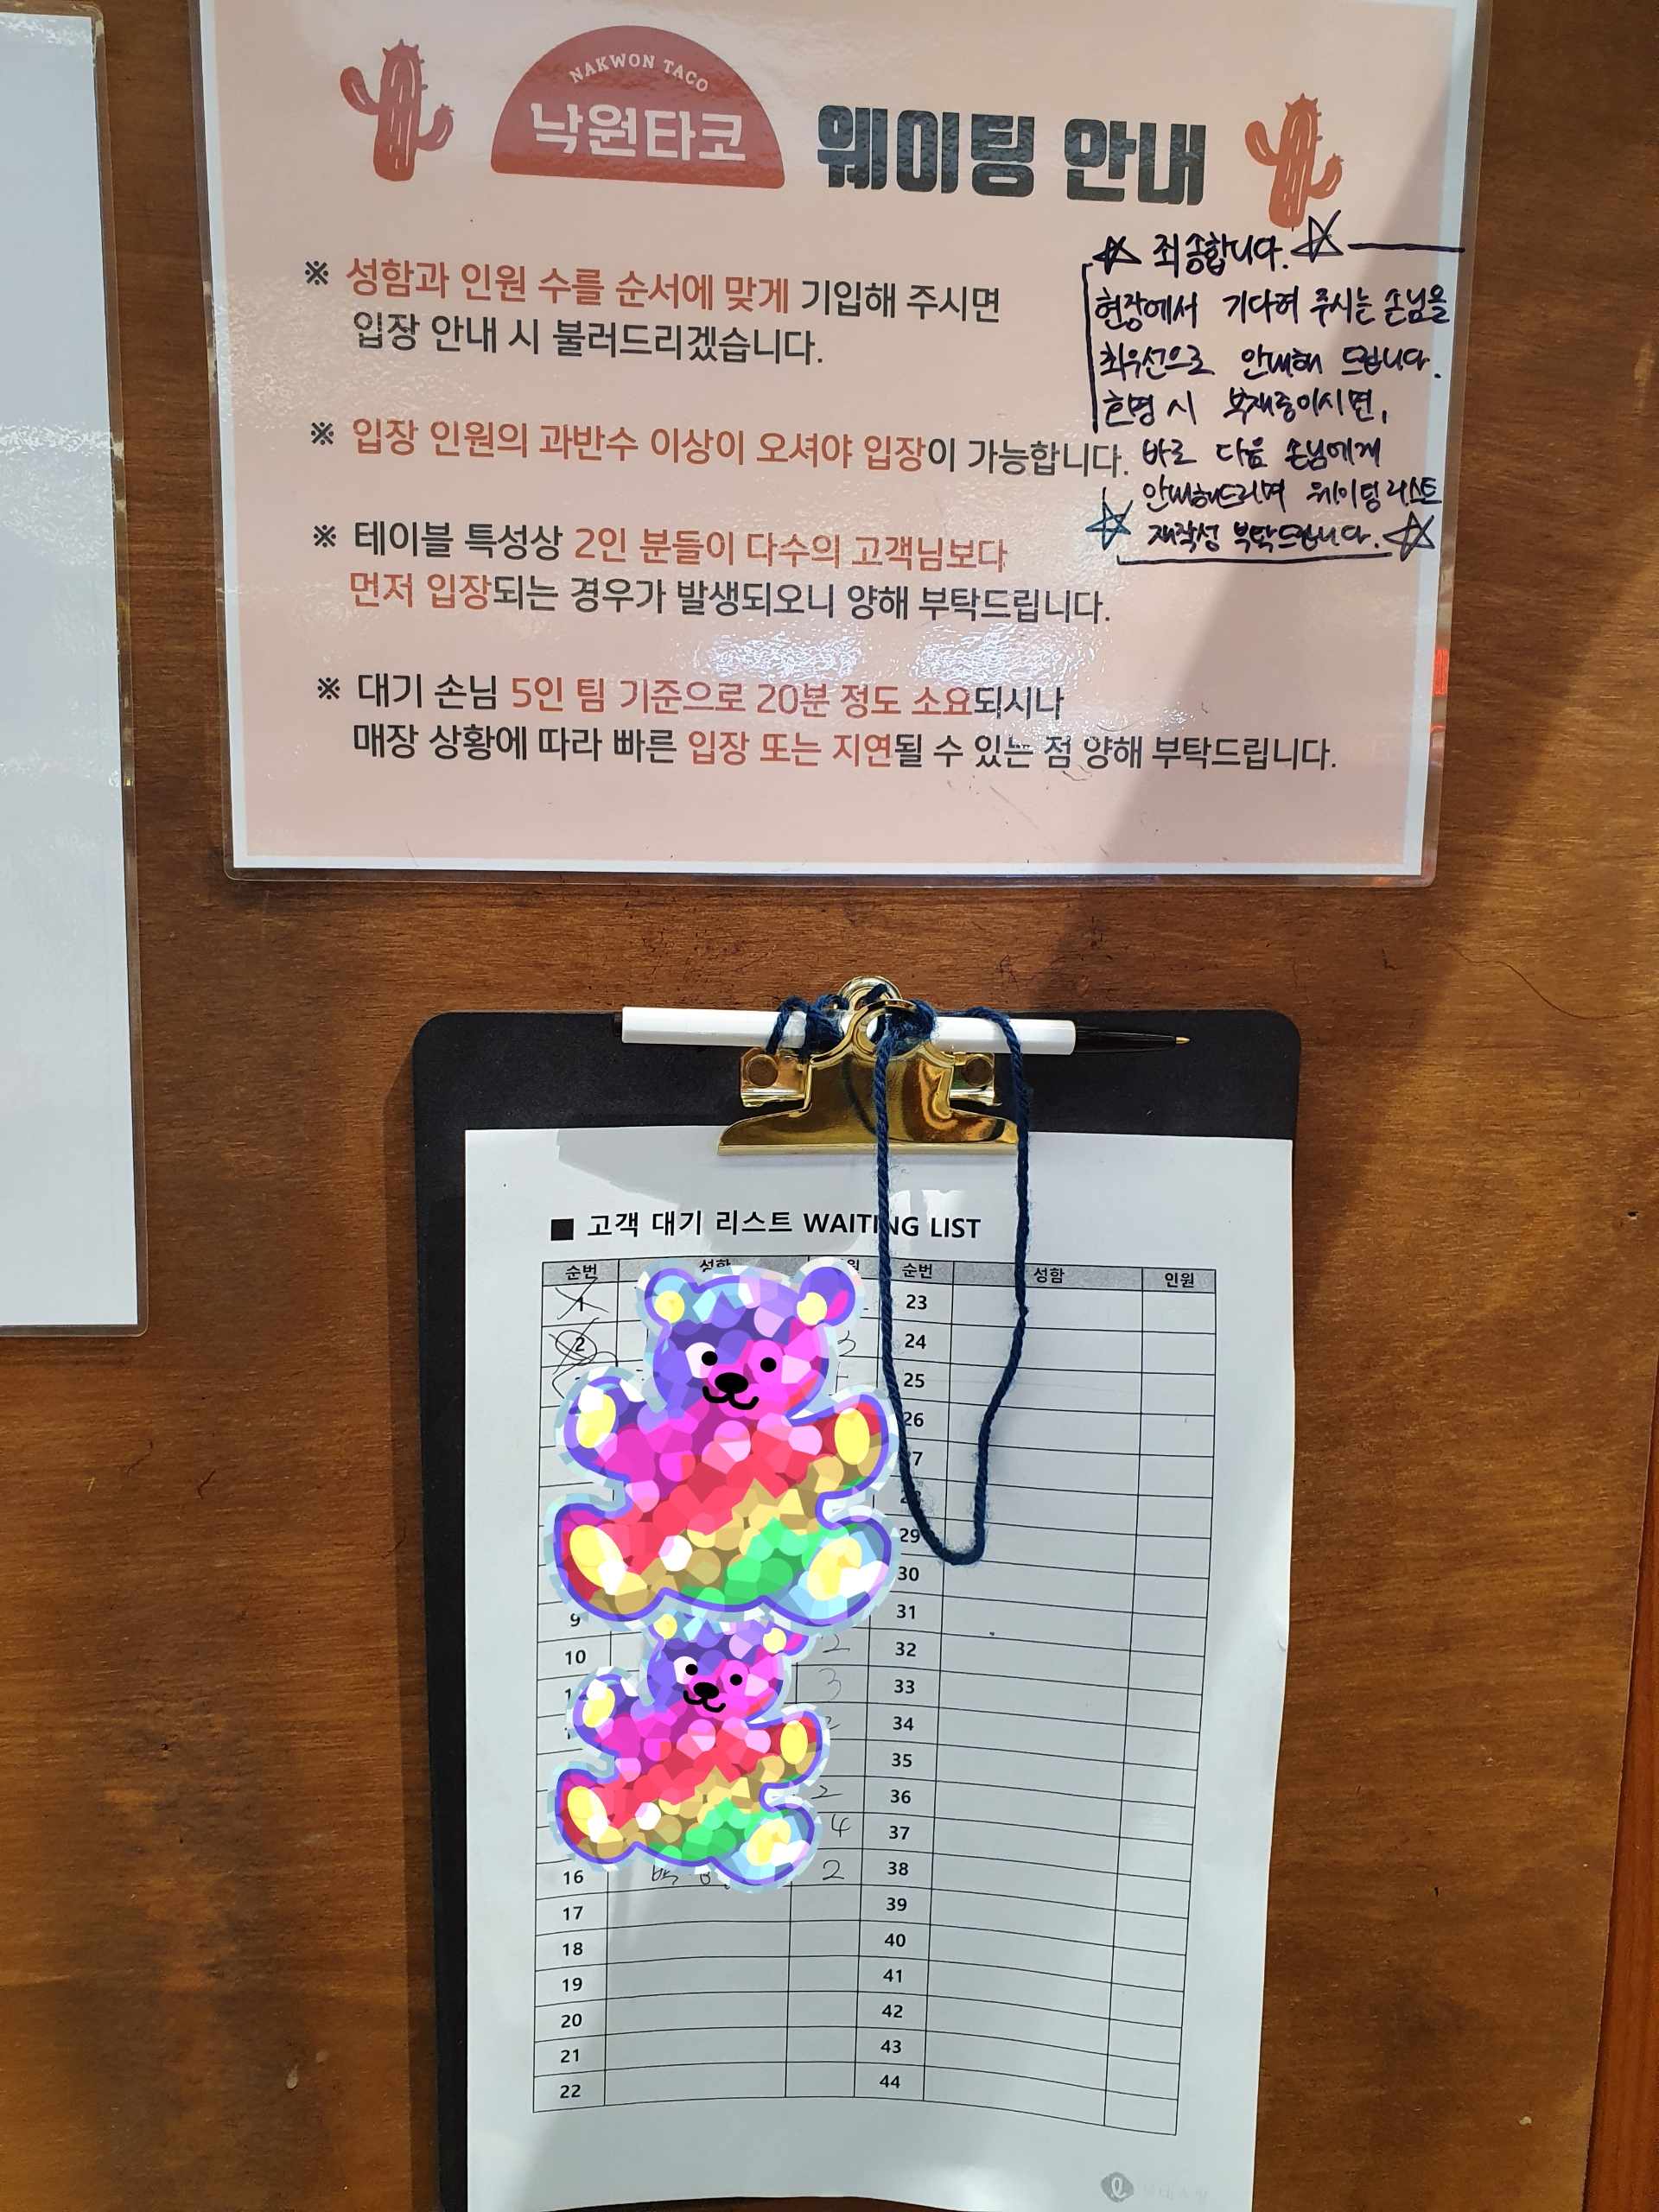 NAKWON TACO
낙원타코
웨이팅 안내
※ 성함과 인원 수를 순서에 맞게 기입해 주시면
입장 안내 시 불러드리겠습니다.
※ 입장 인원의 과반수 이상이 오셔야 입장이 가능합니다.
※ 테이블 특성상 2인 분들이 다수의 고객님보다
먼저 입장되는 경우가 발생되오니 양해 부탁드립니다.
※ 대기 손님 5인 팀 기준으로 20분 정도 소요되시나
매장 상황에 따라 빠른 입장 또는 지연될 수 있는 점 양해 부탁드립니다.
☆ 죄송합니다. ☆
현장에서 기다려 주시는 손님을
최우선으로 안내해 드립니다.
호명 시 부재중이시면,
바로 다음 손님에게
안내해드리며 웨이팅 리스트
☆ 재작성 부탁드립니다. ☆
■ 고객 대기 리스트 WAITING LIST
순번 성함 순번 성함 인원
1 23
2 3 24
25
26
29
30
9 31
10 2 32
3 33
2 34
35
2 36
4 37
16 백 2 38
17 39
18 40
19 41
20 42
21 43
22 44